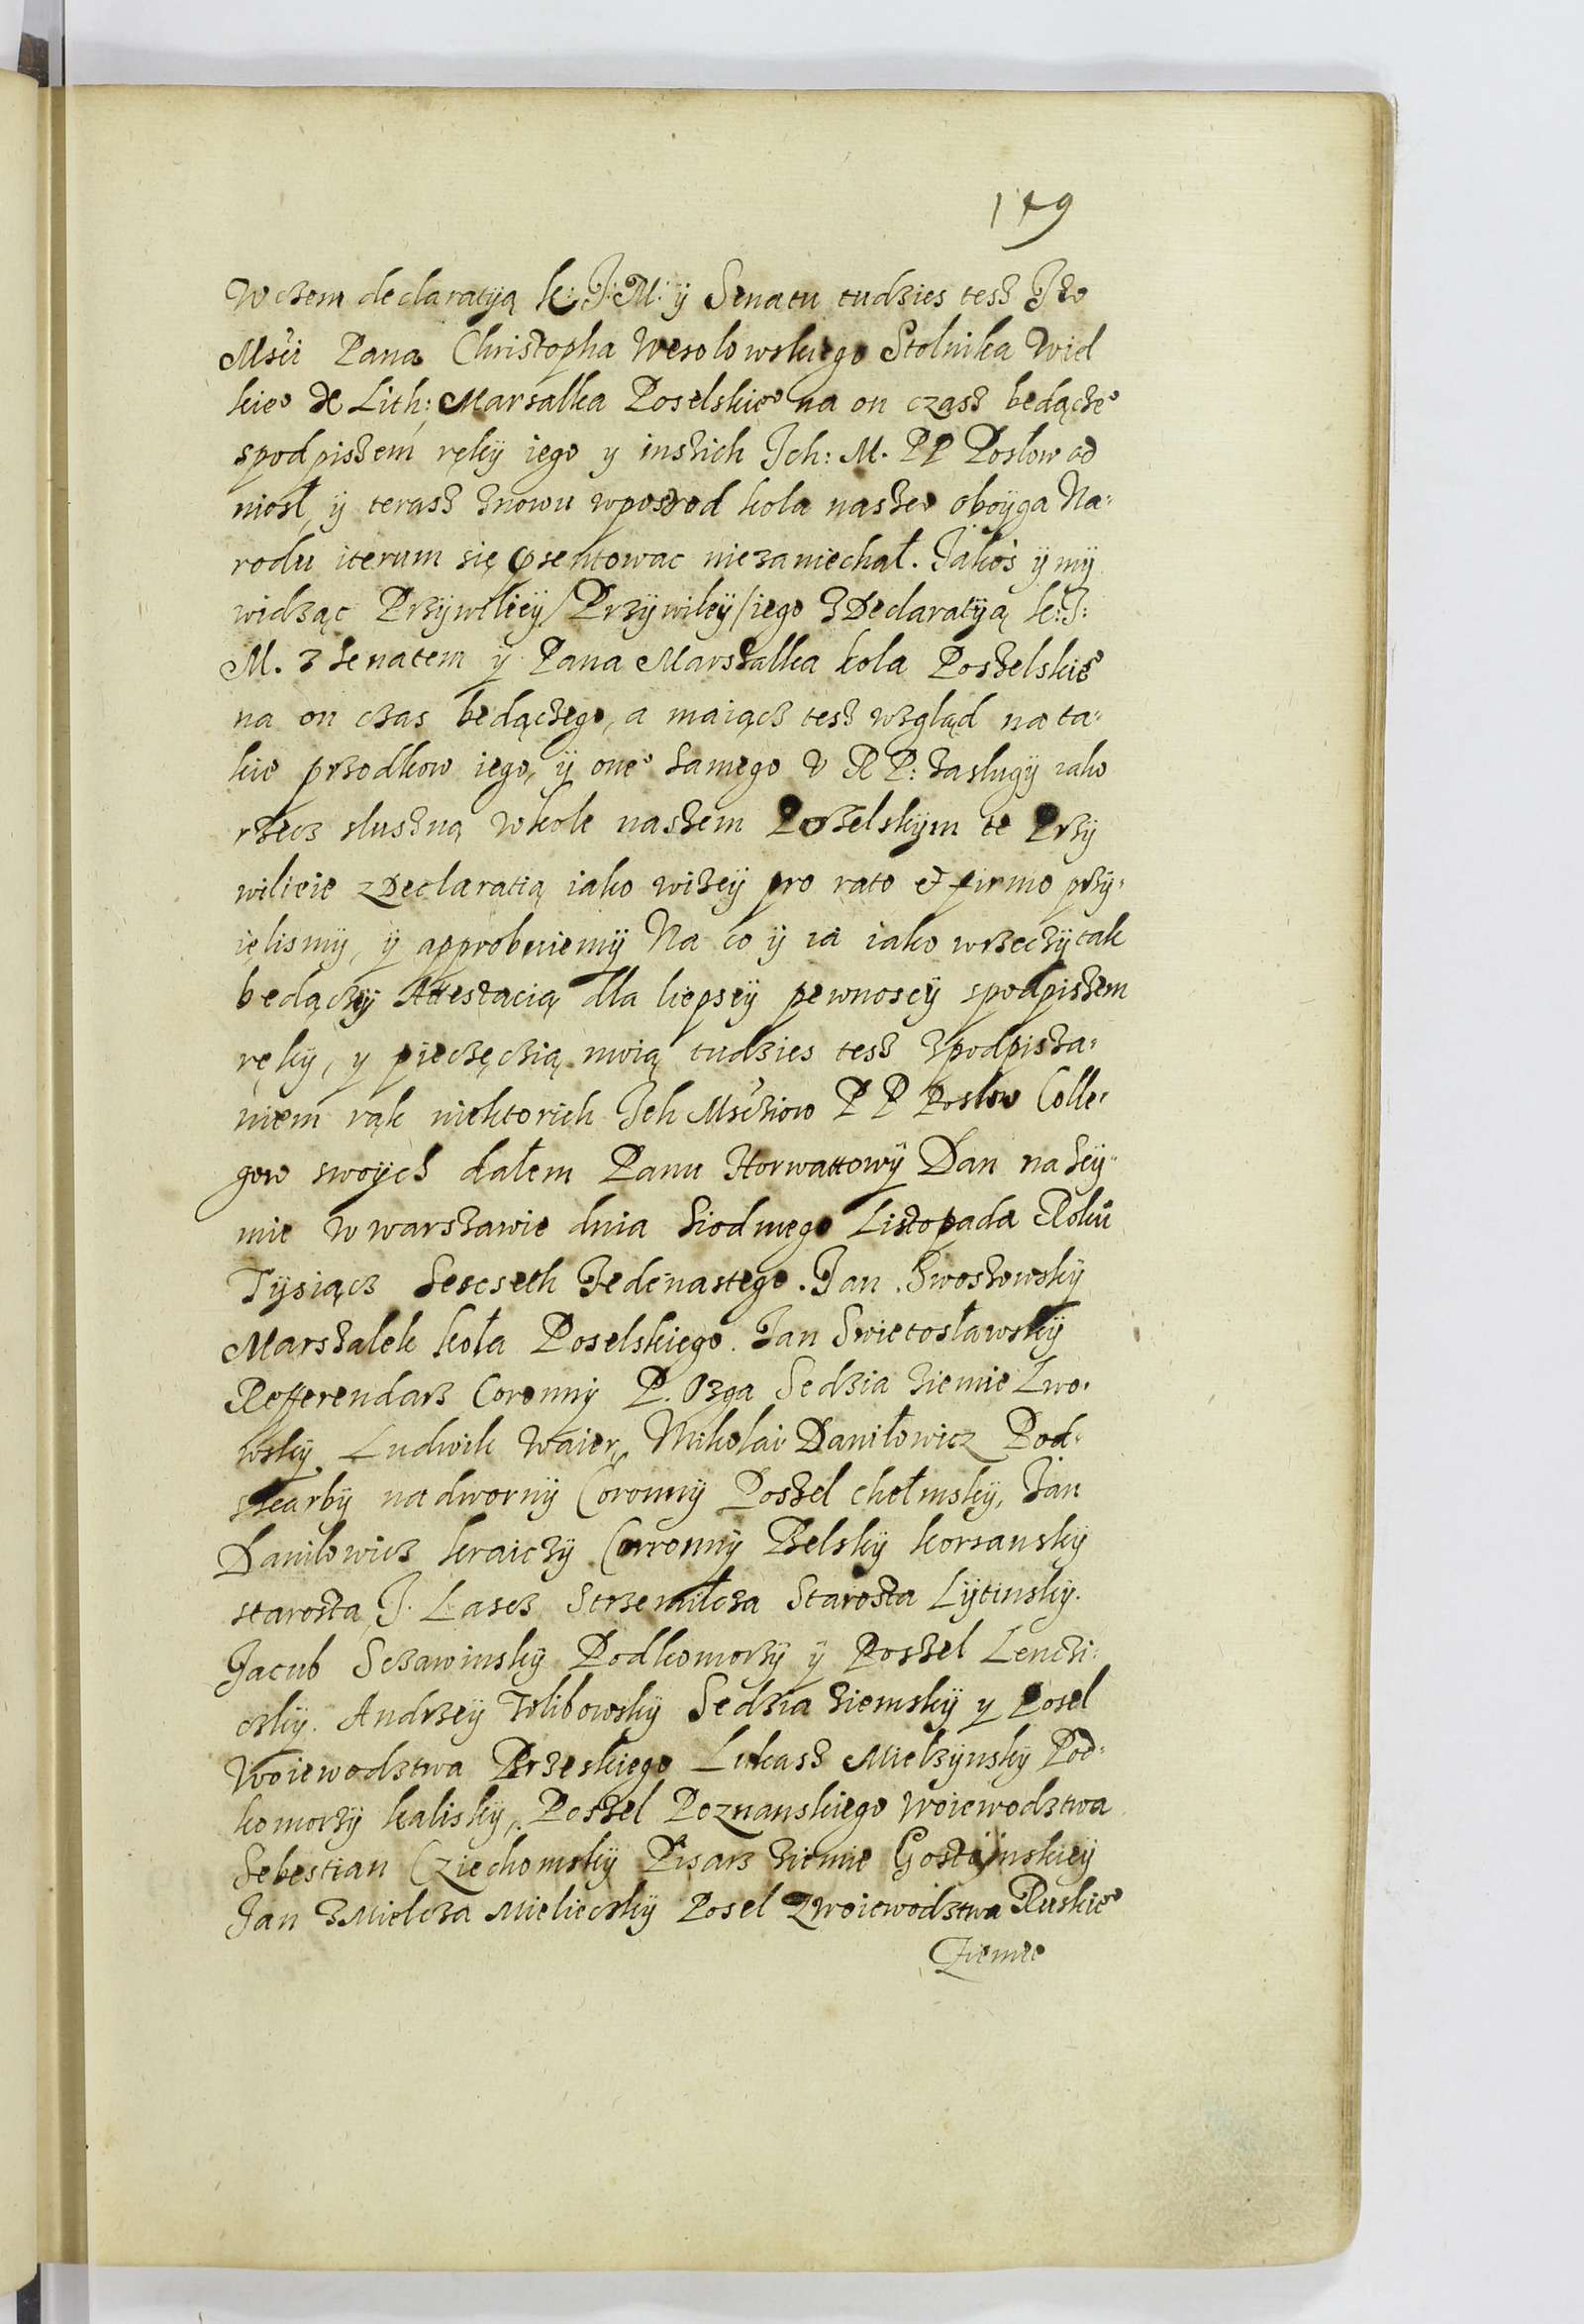 149
Wczem declaratÿą k: J: M: ÿ Senatu tudzies tesz Jeo
Msći Pana Christopha Wesolowskiego Stolnika Wiel
kieo X Lith: Marsalka Poselskieo na on czasz bedączeo
spodpiszem ręky iego y inszich Ich: M. PP Poslow od
niosł, ÿ terasz znowu wposrod kola naszeo oboÿga Na:
rodu iterum się psentowac niezaniechał. Jakos ÿ mÿ
widząc Przÿwiliеÿ / Przÿwileÿ / iego z Declaratÿą k: J:
M. z Senatem ÿ Pana Marszalka kola Poszelskieo
na on czas bedączego, a maiącz tesz wzgląd na ta:
kie przodkow iego, ÿ oneo samego V R P: zaslugÿ iako
rzecz sluszną Wkole naszem Poselskÿm te Przÿ
wilieie z Declaratią iako wizeÿ pro rato et firmo przÿ:
ięlismÿ, ÿ approbuiemÿ Na co ÿ ia iako wrzeczÿ tak
bedączÿ Attestacią dla liepseÿ pewnoscÿ spodpiszem
rękÿ, y pieczęczią moią tudzies tesz z podpisza:
niem rąk niektorich Ich Mscziow PP Poslow Colle:
gow swoÿch dałem Panu Horwattowÿ Dan na Seÿ:
mie w warszawie dnia Siodmego Listopada Roku
Tÿsiącz Sescseth Jedenastego. Jan Swoszowskÿ
Marszalek koła Poselskiego. Jan Swietosławskÿ
Refferendarz Coronnÿ P. Ozga Sedzia ziemie Lwo:
wskÿ. Ludwik Waier, Mikolai Daniłowicz Pod:
skarbÿ nadwornÿ Coronnÿ Poszel chełmskÿ, Jan
Daniłowicz kraiczÿ Corronnÿ Belskÿ korsanskÿ
starosta J. Lascz Strzemilcza Starosta Lÿtinskÿ.
Jacub Sczawinskÿ Podkomorzÿ ÿ Poszel Lenczi:
czkÿ. Andrzeÿ Wlibowskÿ Sedzia ziemskÿ y Posel
Woiewodztwa Brzeskiego Lukasz Mielzÿnskÿ Pod:
komorzÿ kaliskÿ, Poszel Poznanskiego Woiewodztwa
Sebestian Cziechomskÿ Pisarz ziemie Gostÿnskieÿ
Jan z Mielcza Mielieczkÿ Posel z Woiewodztwa Ruskieo
Ziemie